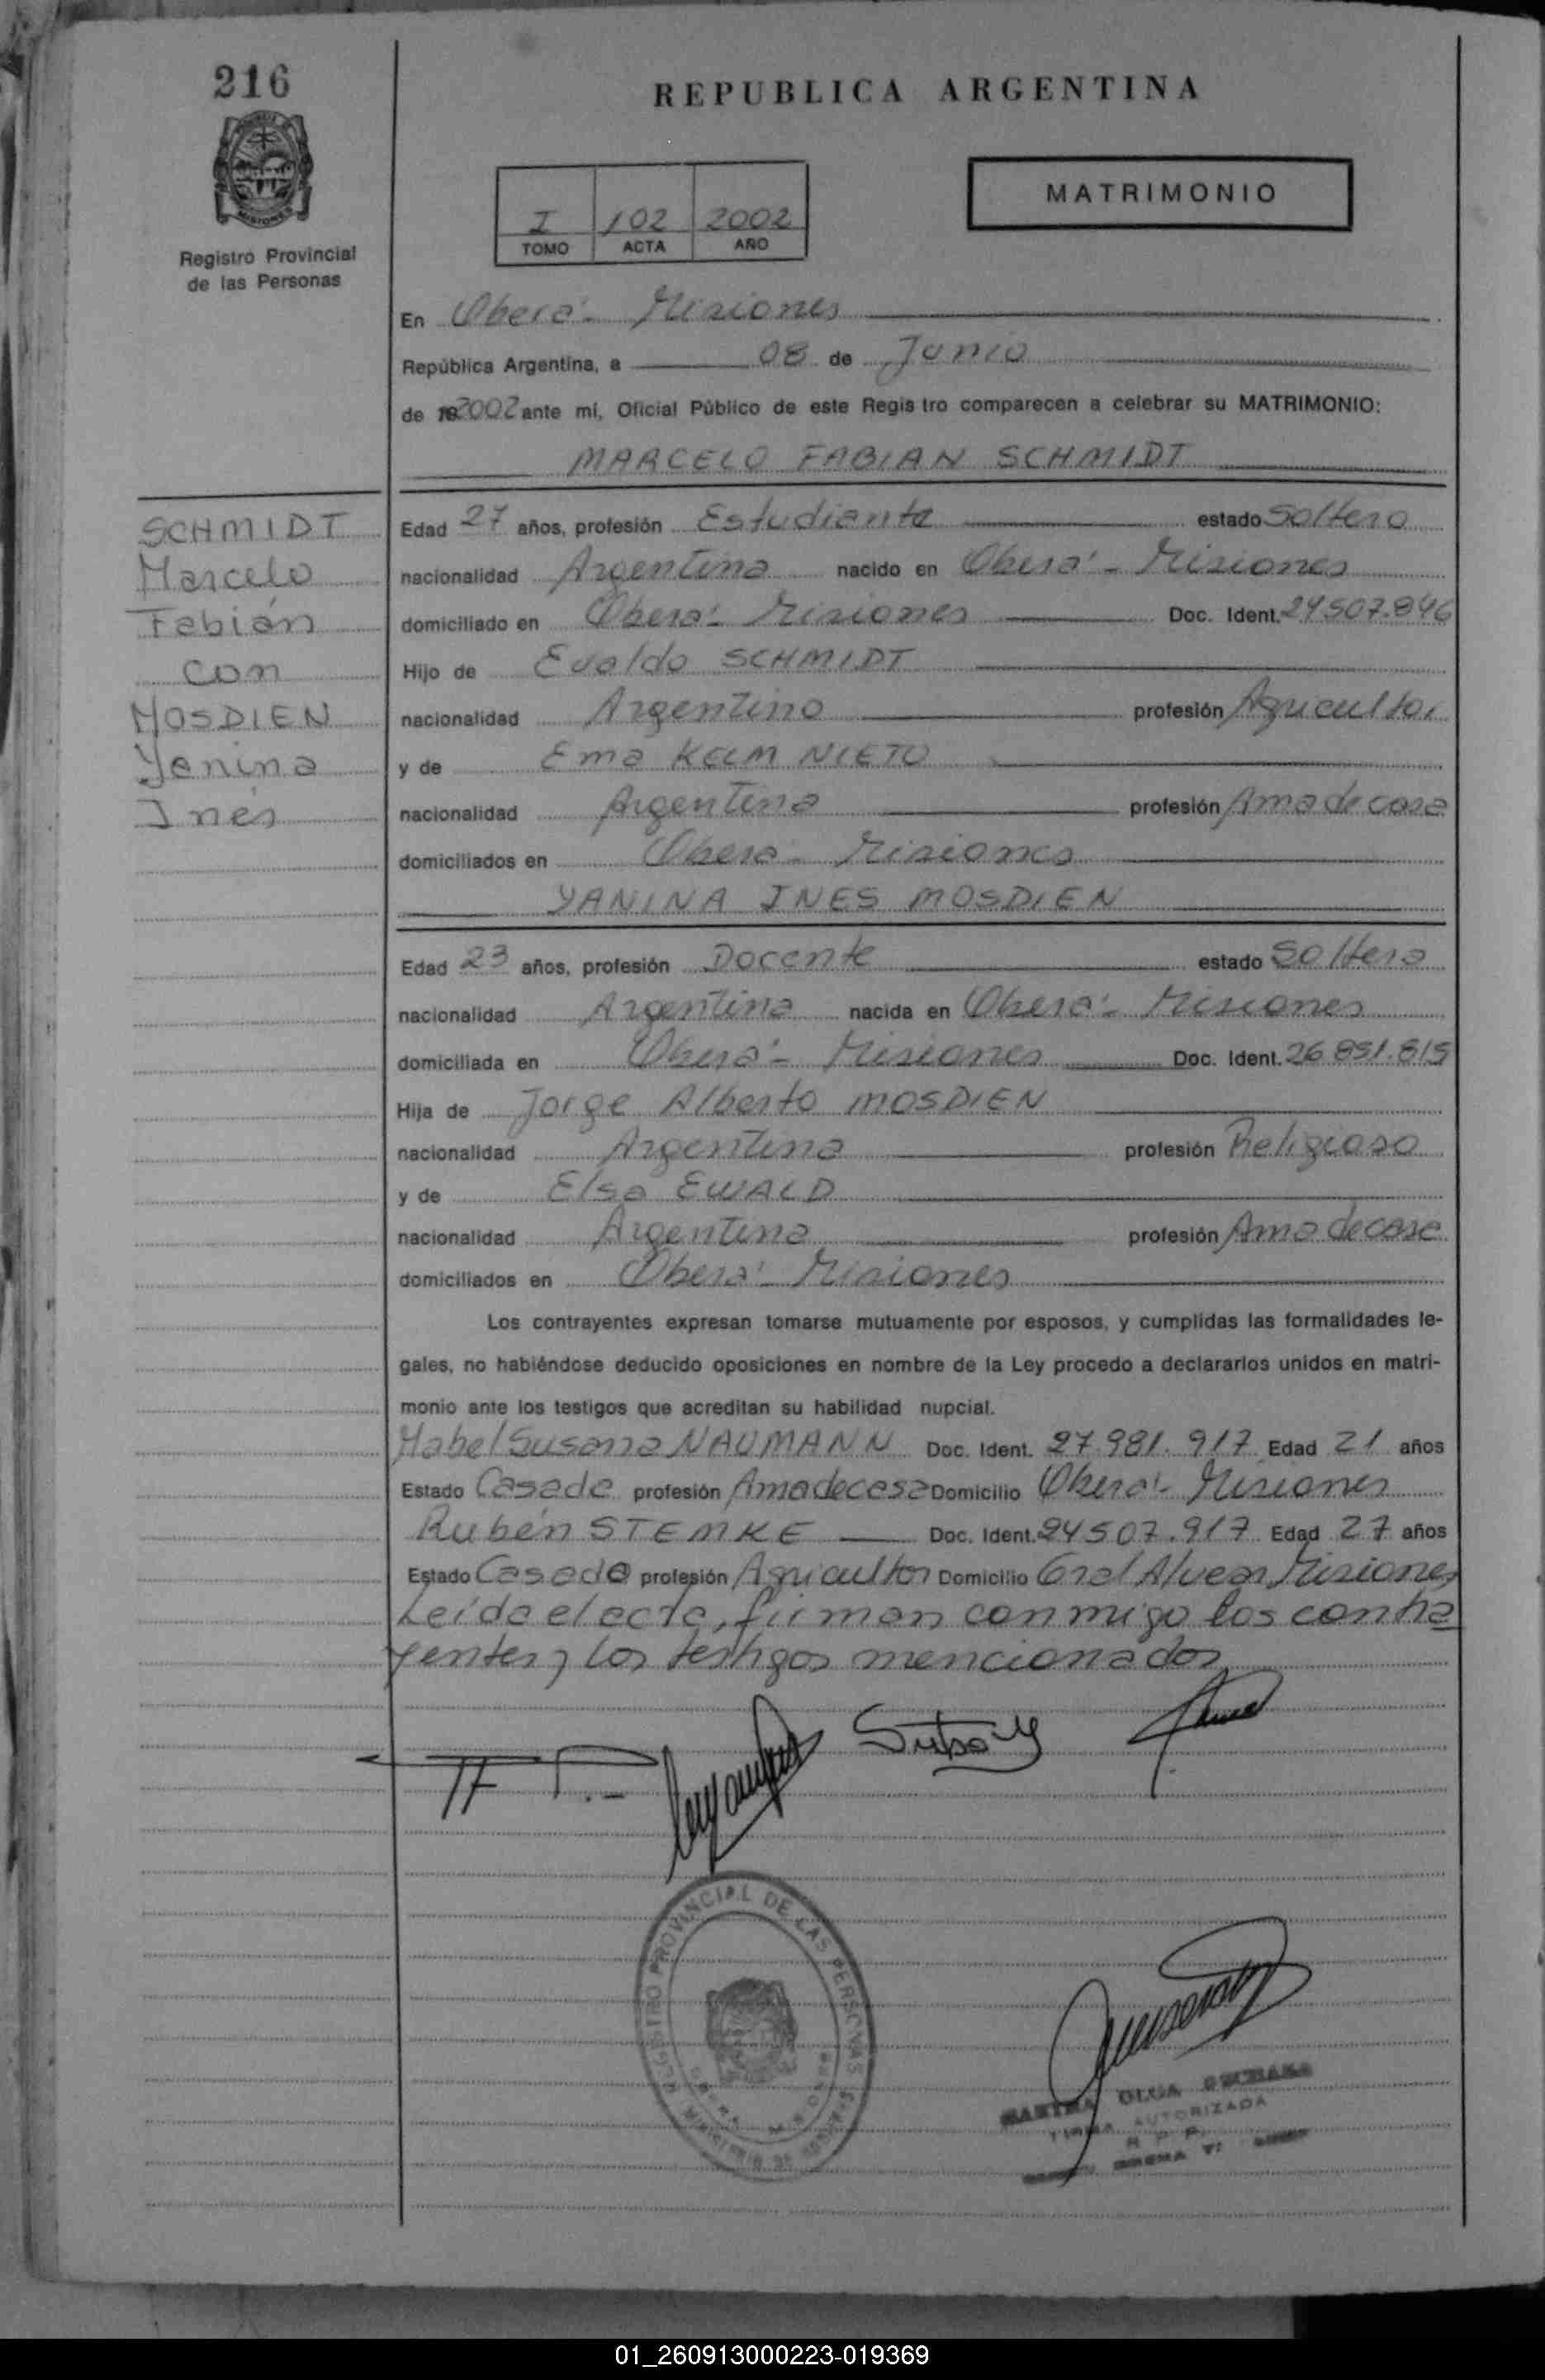 216
REPUBLICA ARGENTINA
MISIONES
Registro Provincial
de las Personas
I 102 2002
TOMO ACTA AÑO
MATRIMONIO
En Oberá - Misiones
República Argentina, a 08 de Junio
de 2002 ante mí, Oficial Público de este Registro comparecen a celebrar su MATRIMONIO:
MARCELO FABIAN SCHMIDT
SCHMIDT
Marcelo
Fabián
con
MOSDIEN
Yanina
Inés
Edad 27 años, profesión Estudiante estado Soltero
nacionalidad Argentina nacido en Oberá - Misiones
domiciliado en Oberá - Misiones Doc. Ident. 24.507.846
Hijo de Evaldo SCHMIDT
nacionalidad Argentino profesión Agricultor
y de Ema KELM NIETO
nacionalidad Argentina profesión Ama de casa
domiciliados en Oberá - Misiones
YANINA INES MOSDIEN
Edad 23 años, profesión Docente estado Soltera
nacionalidad Argentina nacida en Oberá - Misiones
domiciliada en Oberá - Misiones Doc. Ident. 26.851.815
Hija de Jorge Alberto MOSDIEN
nacionalidad Argentina profesión Religioso
y de Elsa EWALD
nacionalidad Argentina profesión Ama de casa
domiciliados en Oberá - Misiones
Los contrayentes expresan tomarse mutuamente por esposos, y cumplidas las formalidades le-
gales, no habiéndose deducido oposiciones en nombre de la Ley procedo a declararlos unidos en matri-
monio ante los testigos que acreditan su habilidad nupcial.
Mabel Susana NAUMANN Doc. Ident. 27.981.917 Edad 21 años
Estado Casada profesión Ama de casa Domicilio Oberá - Misiones
Rubén STEMKE Doc. Ident. 24507.917 Edad 27 años
Estado Casado profesión Agricultor Domicilio Gral Alvear, Misiones
Leída el acta, firman conmigo los contra
yentes y los testigos mencionados
REGISTRO PROVINCIAL DE LAS PERSONAS
MINISTERIO DE
OLGA
FIRMA AUTORIZADA
R. P. P.
01_260913000223-019369